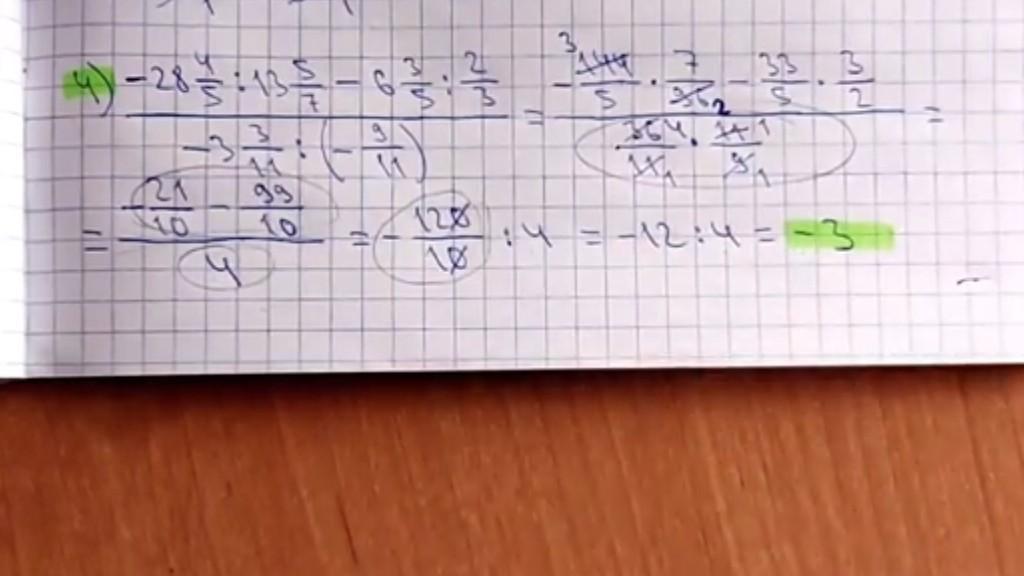 4) (-28 4/5 : 13 5/7 - 6 3/5 : 2/3) / (-3 3/11 : (-9/11)) = (-144/5 · 7/96 - 33/5 · 3/2) / (36/11 · 11/9) =
= (-21/10 - 99/10) / 4 = -120/10 : 4 = -12 : 4 = -3